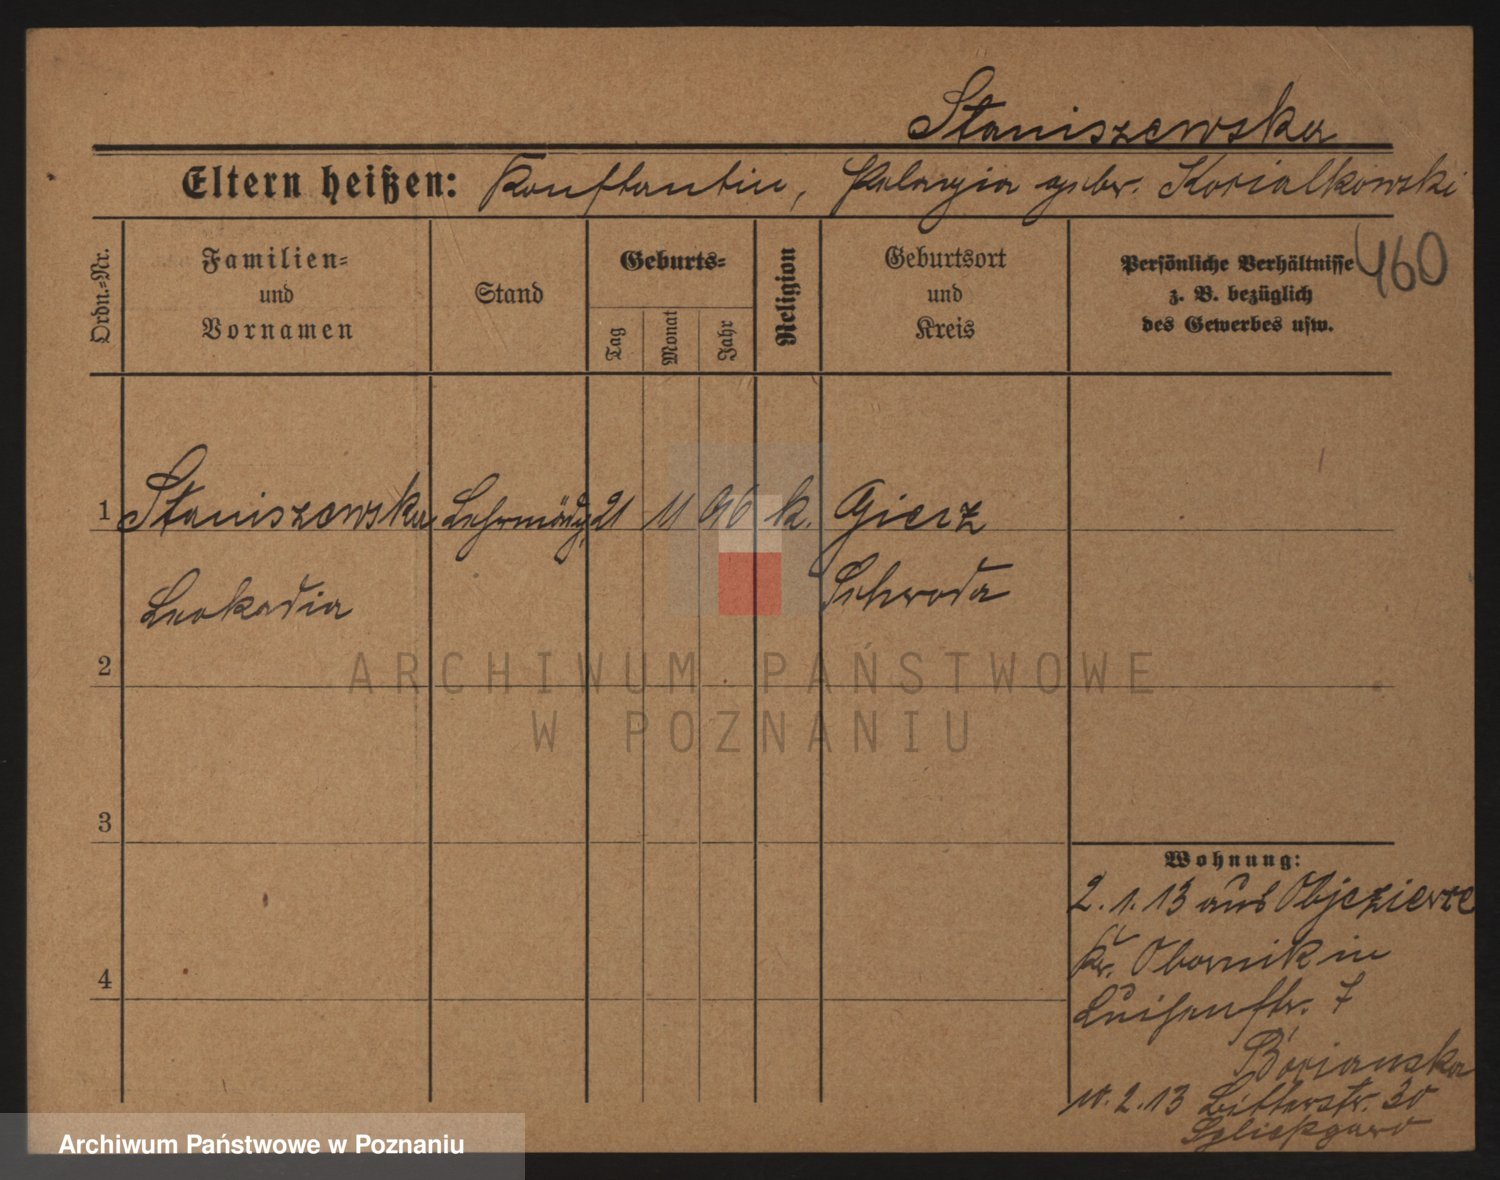 Staniszewska
Eltern heißen: Konstantin, Pelagia gebr. Korialkowski
460
Ordn.-Nr.
Familien-
und
Vornamen
Stand
Geburts-
Tag
Monat
Jahr
Religion
Geburtsort
und
Kreis
Persönliche Verhältnisse
z. B. bezüglich
des Gewerbes usw.
1 Staniszewska Lehrmädg. 21 11 96 k. Gierz
Leokadia Schroda
2
3
4
Wohnung:
2. 1. 13 aus Objezierze
Kr. Obornik in
Luisenstr. 7
10. 2. 13 Ritterstr. 30
ARCHIWUM PAŃSTWOWE
W POZNANIU
Archiwum Państwowe w Poznaniu